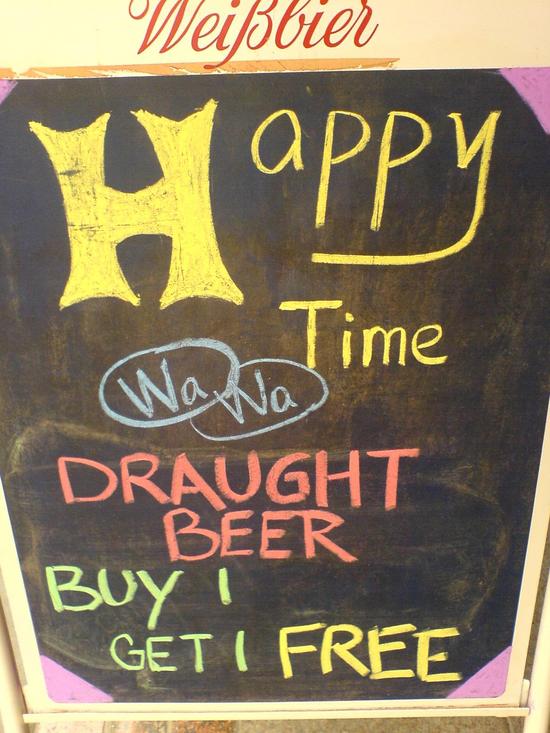 Weißbier
Happy
Time
Wa Wa
DRAUGHT
BEER
BUY 1
GET 1 FREE